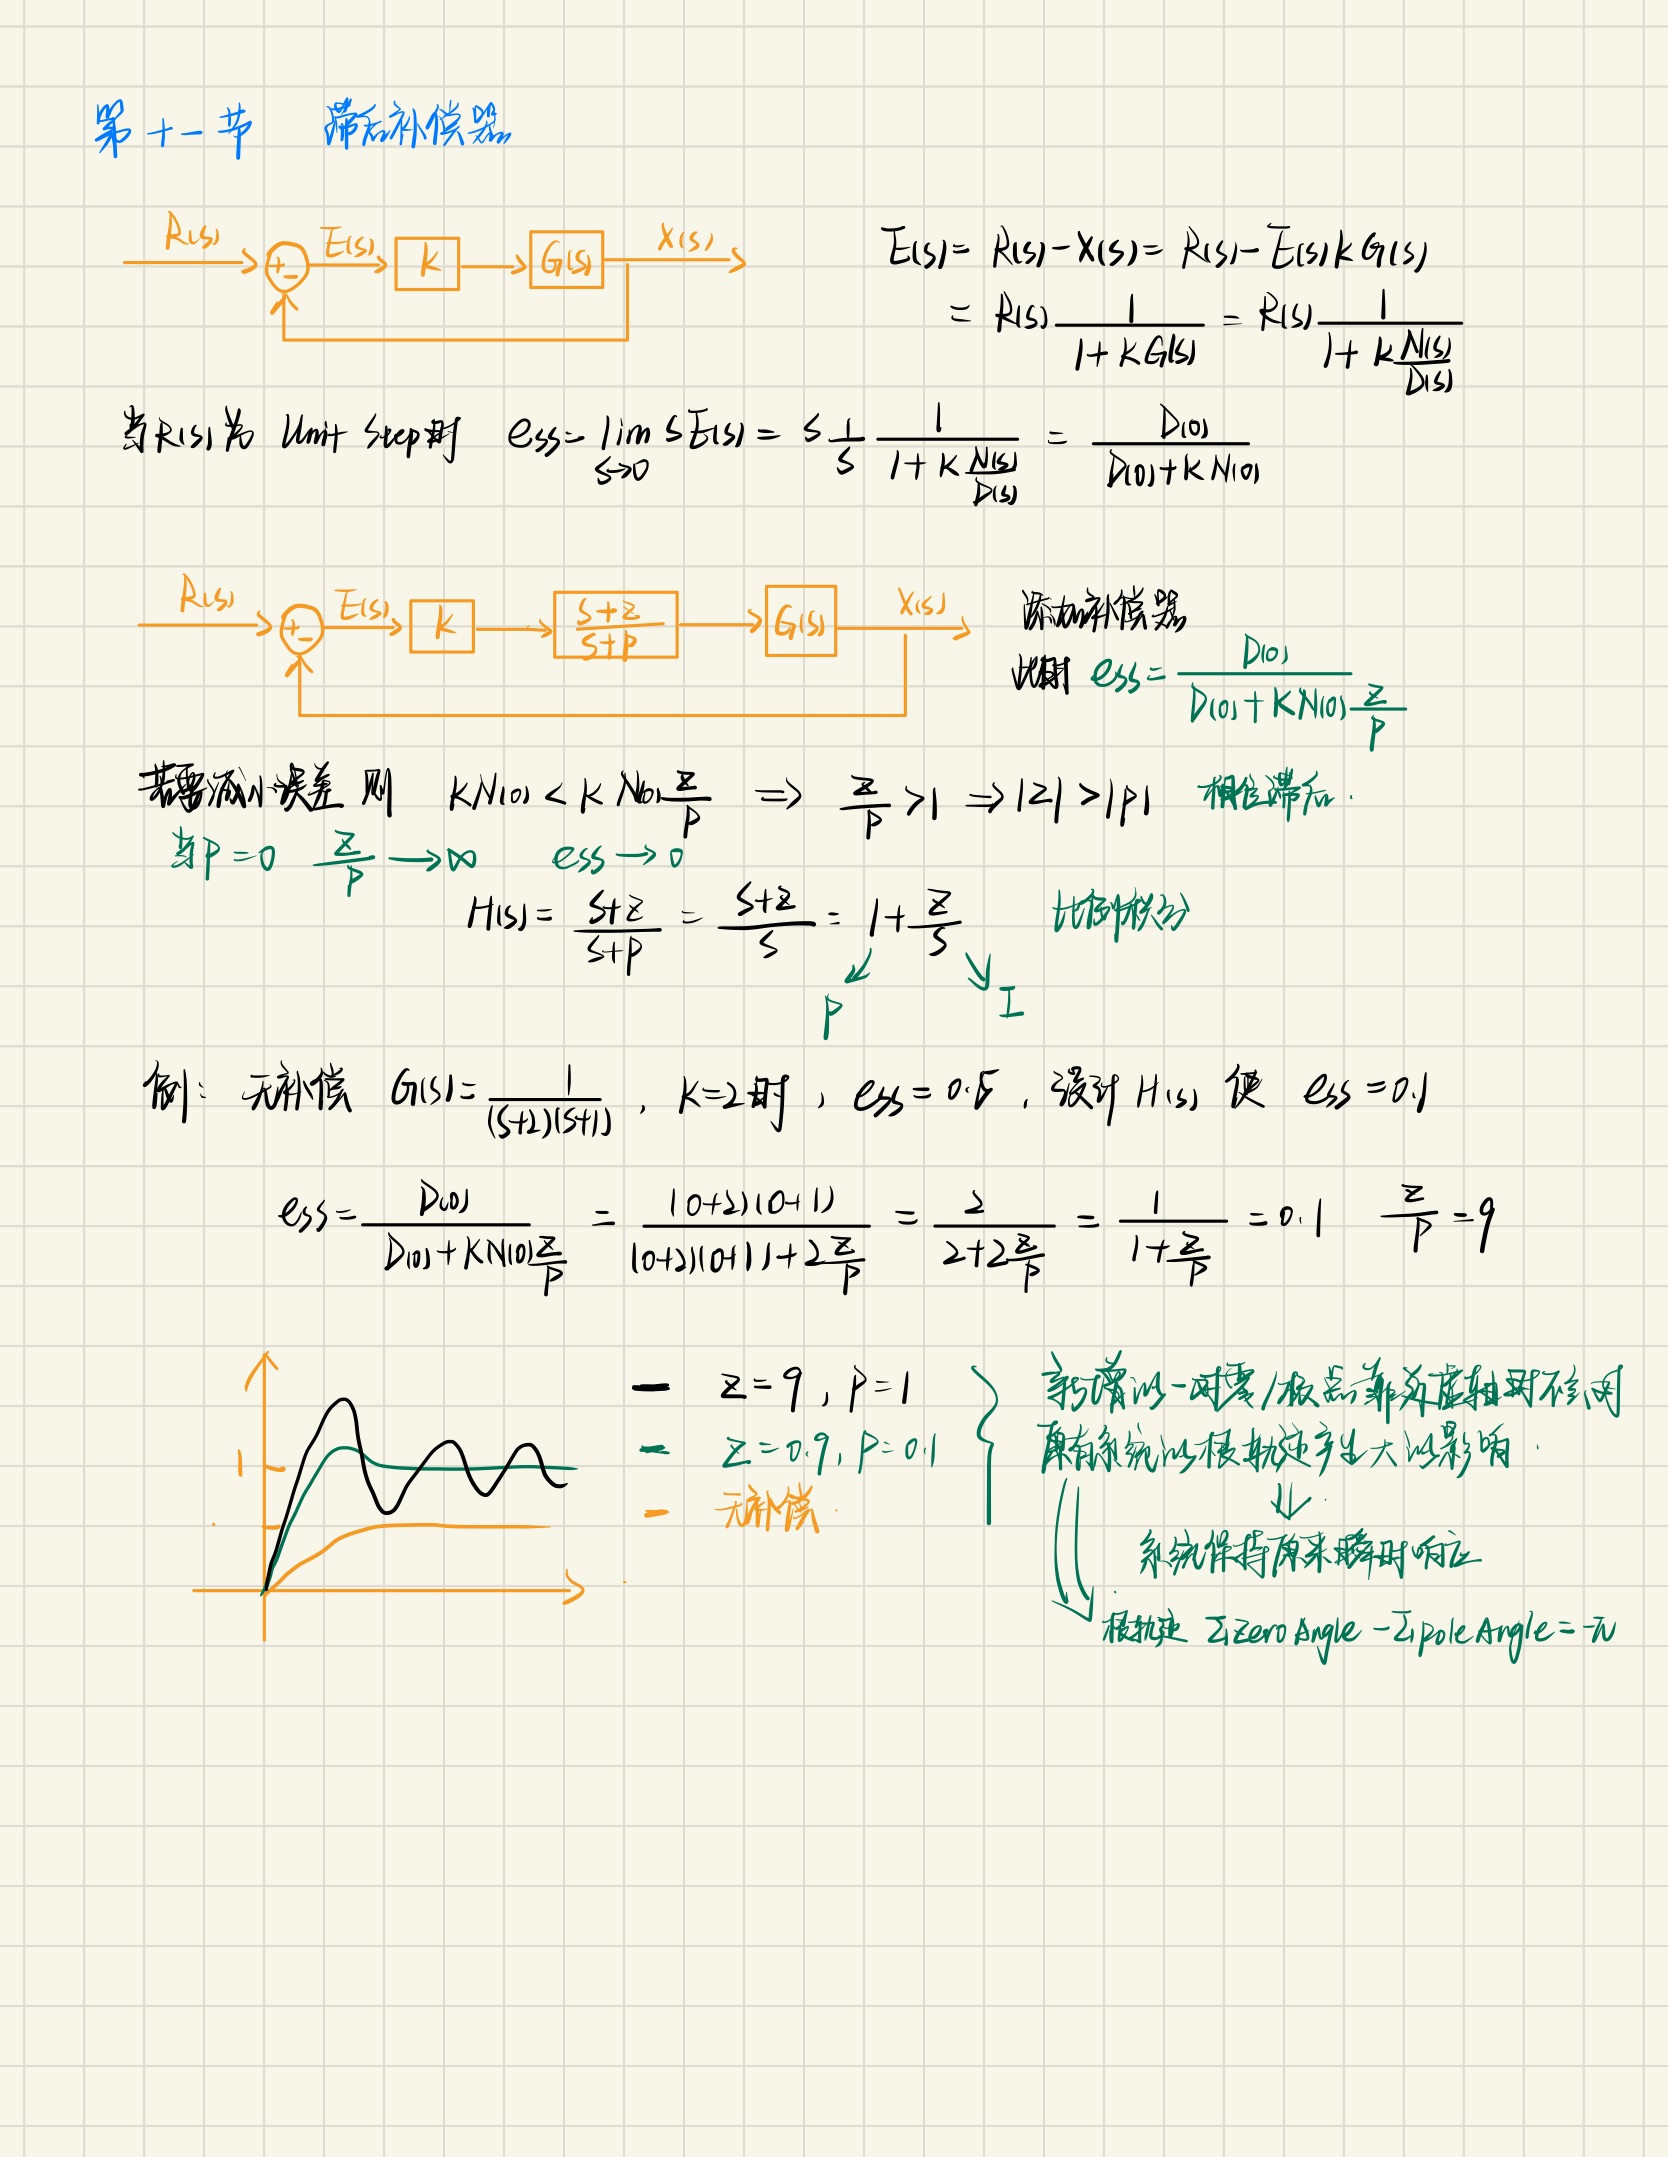 第十一节 滞后补偿器
R(s) + - E(s) K G(s) X(s)
E(s) = R(s) - X(s) = R(s) - E(s) K G(s)
= R(s) 1/(1+KG(s)) = R(s) 1/(1+K N(s)/D(s))
当R(s)为 Unit Step时 ess = lim s→0 sE(s) = s 1/s 1/(1+K N(s)/D(s)) = D(0)/(D(0)+KN(0))
R(s) + - E(s) K (s+z)/(s+p) G(s) X(s)
添加补偿器
此时 ess = D(0)/(D(0)+KN(0) z/p)
若要减小误差 则 KN(0) < KN(0) z/p ⇒ z/p >1 ⇒ |z| > |p| 相位滞后.
当P=0 z/p → ∞ ess → 0
H(s) = (s+z)/(s+p) = (s+z)/s = 1 + z/s 比例积分
P I
例: 无补偿 G(s) = 1/((s+2)(s+1)), K=2时, ess = 0.5, 设计 H(s) 使 ess = 0.1
ess = D(0)/(D(0)+KN(0) z/p) = (0+2)(0+1)/((0+2)(0+1)+2 z/p) = 2/(2+2 z/p) = 1/(1+z/p) = 0.1 z/p = 9
1
— z=9, p=1
— z=0.9, p=0.1
— 无补偿.
新增的一对零/极点靠近虚轴时不会对
原有系统的根轨迹产生大的影响.
⇓
系统保持原来瞬时响应
根轨迹 Σ Zero Angle - Σ pole Angle = -π